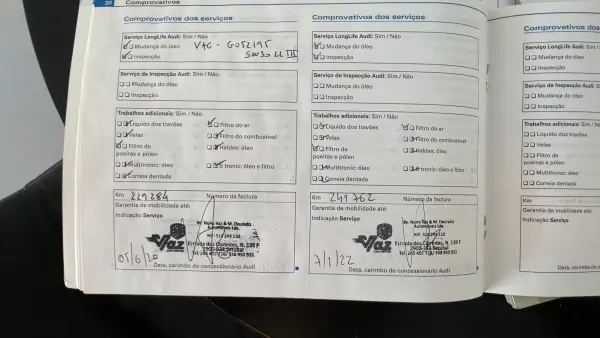 20 Comprovativos
Comprovativos dos serviços
Serviço LongLife Audi: Sim / Não
Mudança do óleo VAG - G052195
Inspecção 5W30 LL III
Serviço de Inspecção Audi: Sim / Não
Mudança do óleo
Inspecção
Trabalhos adicionais: Sim / Não
Líquido dos travões
Filtro do ar
Velas
Filtro do combustível
Filtro de
poeiras e pólen
Haldex: óleo
Multitronic: óleo
S tronic: óleo e filtro
Correia dentada
Km 229284 Número da factura
Garantia de mobilidade até:
Indicação Serviço
De. Nuno Vaz & M. Dourado
Automóveis Lda.
Vaz
Estrada dos Ciprestes, N. 139 F
05/6/20
Data, carimbo do concessionário Audi
Comprovativos dos serviços
Serviço LongLife Audi: Sim / Não
Mudança do óleo
Inspecção
Serviço de Inspecção Audi: Sim / Não
Mudança do óleo
Inspecção
Trabalhos adicionais: Sim / Não
Líquido dos travões
Filtro do ar
Velas
Filtro do combustível
Filtro de
poeiras e pólen
Haldex: óleo
Multitronic: óleo
S tronic: óleo e filtro
Correia dentada
Km 241762 Número da factura
Garantia de mobilidade até:
Indicação Serviço
De. Nuno Vaz & M. Dourado
Automóveis Lda.
Vaz
Estrada dos Ciprestes, N. 139 F
7/1/22
Data, carimbo do concessionário Audi
Comprovativos dos
Serviço LongLife Audi: Sim /
Mudança do óleo
Inspecção
Serviço de Inspecção Audi: S
Mudança do óleo
Inspecção
Trabalhos adicionais: Sim / N
Líquido dos travões
Velas
Filtro de
poeiras e pólen
Multitronic: óleo
Correia dentada
Km
Garantia de mobilidade até:
Indicação Serviço
Data, carimbo do c